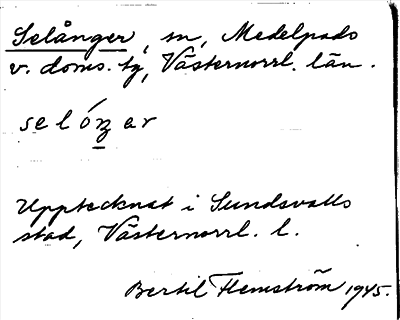 Selånger, sn, Medelpads
v. doms. tg, Västernorrl. län.
selóŋ̠ər
Upptecknat i Sundsvalls
stad, Västernorrl. l.
Bertil Flemström 1945.